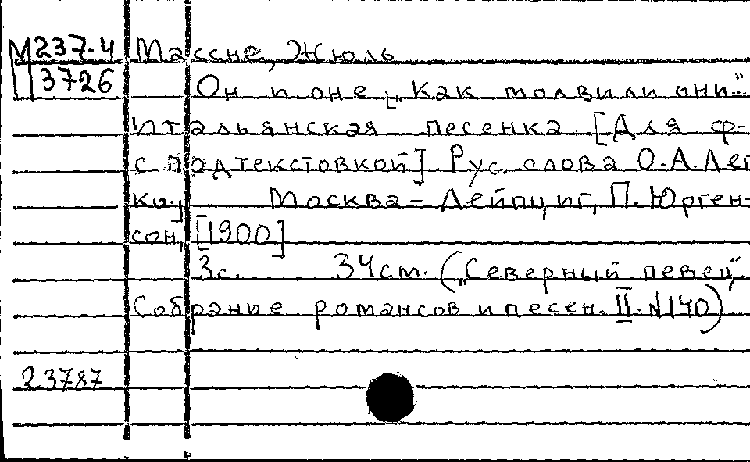 М237-4 Массне, Жюль
3726 Он и оне [„Как молвили они..."
Итальянская песенка [Для ф-
с подтекстовкой] Рус. слова О.А.Леп
ко.] Москва-Лейпциг, П.Юрген-
сон, [1900]
3с. 34см. („Северный певец".
Собрание романсов и песен. II. №140)
23787